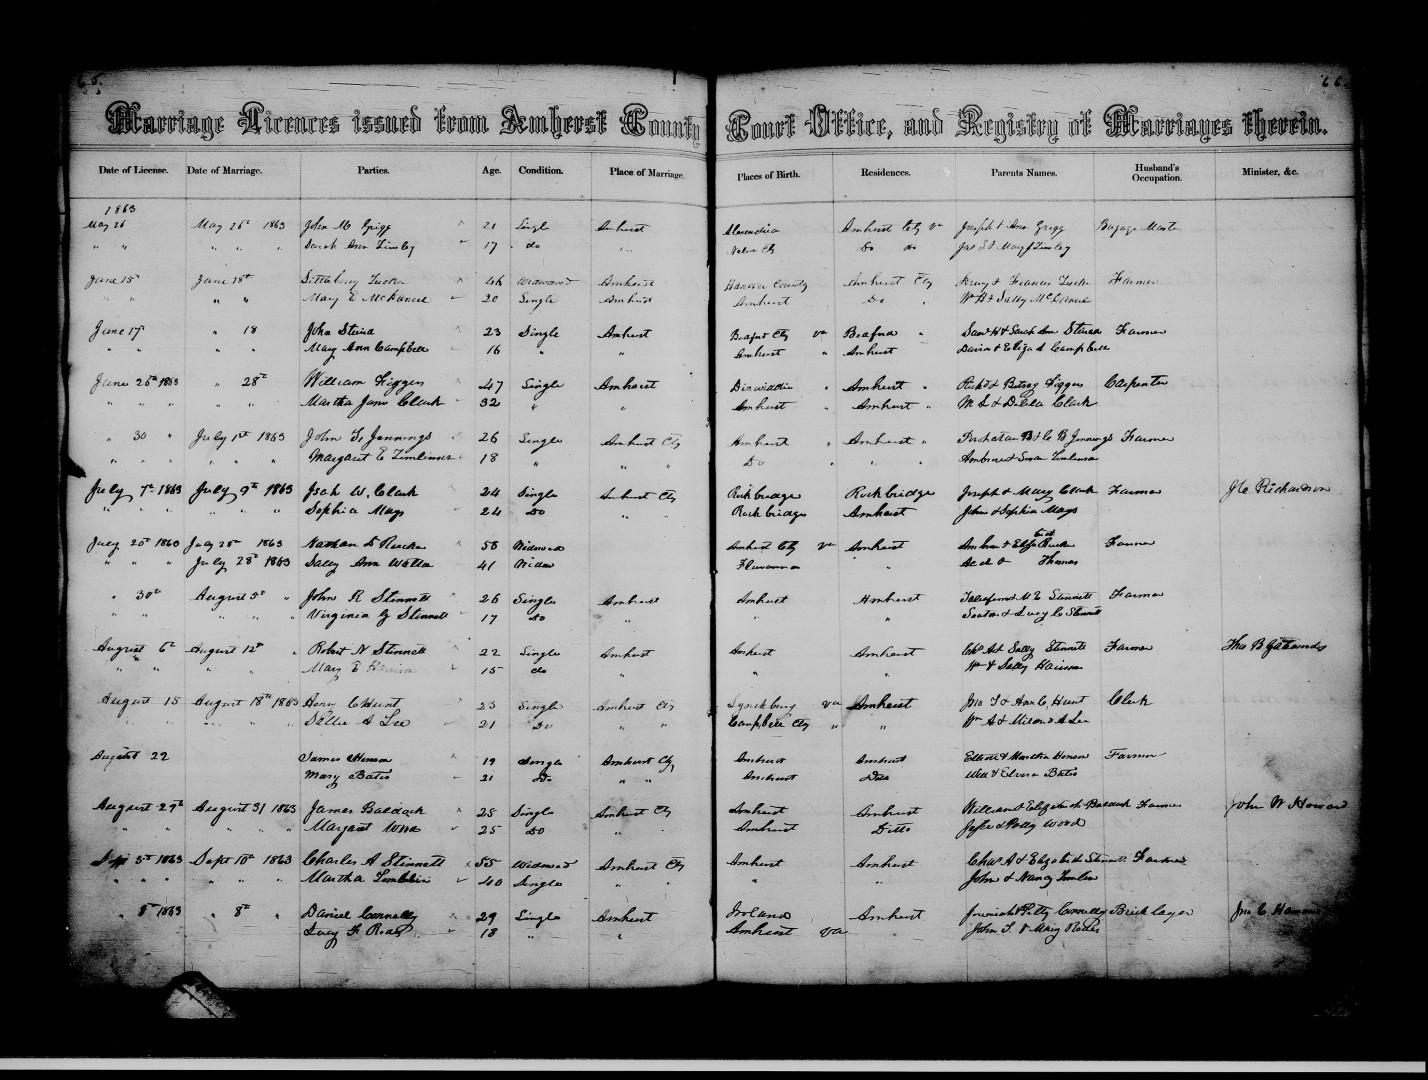 65.
66.
Marriage Licences issued from Amherst County Court Office, and Registry of Marriages therein.
Date of License. Date of Marriage. Parties. Age. Condition. Place of Marriage. Places of Birth. Residences. Parents Names. Husband's Occupation. Minister, &c.
1863
May 26 May 26th 1863 John M Grigg 21 Single Amherst Alexandria Amherst Cty Va Joseph & Ann Grigg
" " " " " Sarah Ann 17 do " " Nelson Cty Do do
June 15 June 18th Tucker 46 Widowed Amherst Hanover County Amherst Cty & Frances Tucker Farmer
" " " " Mary E McDaniel 20 Single Amherst Do " Wm H & Sally McDaniel
June 17 " 18 John 23 Single Amherst Va " Saml H & Sarah Ann Farmer
" " " " Mary Ann Campbell 16 " " Amherst " Amherst David & Eliza A Campbell
June 26th 1863 " 28th William Figgers 47 Single Amherst Dinwiddie " Amherst " Richd & Betsey Figgers Carpenter
" " " " " Martha Jane Clark 32 " " Amherst " Amherst " M S & Clark
" 30 " July 1st 1863 John Jennings 26 Single Amherst Cty Amherst " Amherst " B Jennings Farmer
" " " " " " Margaret E Tomlinson 18 " " " Do " " " Ambrose & Susan Tomlinson
July 7th 1863 July 9th 1863 W. Clark 24 Single Amherst Cty Rockbridge Rockbridge Joseph & Mary Clark Farmer J C Richardson
" " " " " " Sophia Mays 24 Do " " Rockbridge Amherst John & Sophia Mays
July 20th 1863 July 28 1863 Nathan D Rucker 58 Widowed Amherst Cty Va Amherst Rucker Farmer
" " " July 28th 1863 Sally Ann 41 Widow Fluvanna " & Thomas
" 30th August 5th " John R Stinnett 26 Single Amherst Amherst Amherst & M E Stinnett Farmer
" " " " " Virginia G Stinnett 17 Do " " " & Lucy C Stinnett
August 6th August 12th " Robert N Stinnett 22 Single Amherst Amherst Amherst & Sally Stinnett Farmer Tho B
" " " " " Mary E 15 do " " " Wm & Sally
August 15 August 18th 1863 Henry C Hunt 23 Single Amherst Cty Lynchburg Va Amherst Jno T & Ann C Hunt Clerk
" " " " " A Lee 21 Do " " Campbell Cty " " Wm A & A Lee
August 22 James Henson 19 Single Amherst Cty Amherst Amherst & Martha Henson Farmer
Mary Bates 21 Do " " Amherst Ditto Will & Elvira Bates
August 29th August 31 1863 James Baldock 25 Single Amherst Cty Amherst Amherst William & Elizabeth Baldock Farmer John W Howard
" " " " " Margaret Wood 25 Do " " Amherst Ditto & Polly Wood
Sept 5th 1863 Sept 10th 1863 Charles A Stinnett 55 Widowed Amherst Cty Amherst Amherst Chas A & Elizabeth Stinnett Farmer
" " " " " " Martha 40 Single " " " " John & Nancy
" 8th 1863 " 8th " Daniel Connelly 29 Single Amherst Ireland Amherst Jeremiah & Patty Connelly Brick layer Jno C
Lucy F 18 " " Amherst Va John T & Mary